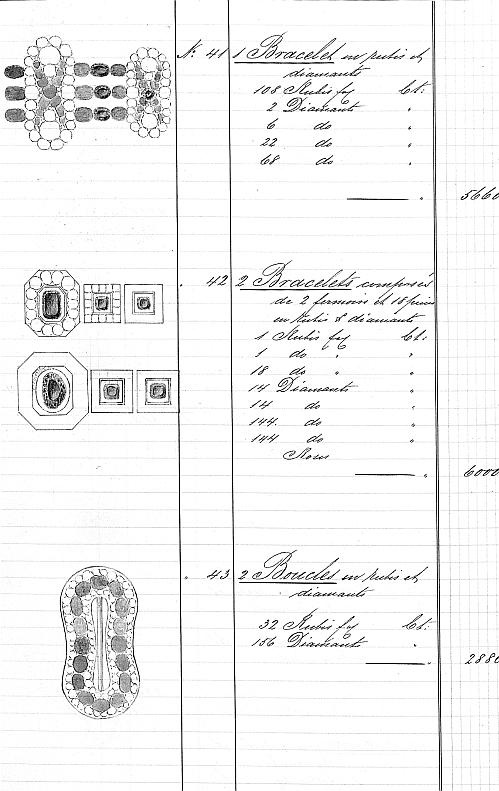 N.° 41 1 Bracelet en rubis et
diamants
108 Rubis Ct:
2 Diamants "
6 do "
22 do "
68 do "
" 5660
" 42 2 Bracelets composés
de 2 fermoirs et 18
en Rubis & diamants
1 Rubis Ct:
1 do " "
18 do " "
14 Diamants "
14 do "
144. do "
144 do "
Roses
" 6000
" 43 2 Boucles en rubis et
diamants
32 Rubis Ct:
156 Diamants "
" 2880